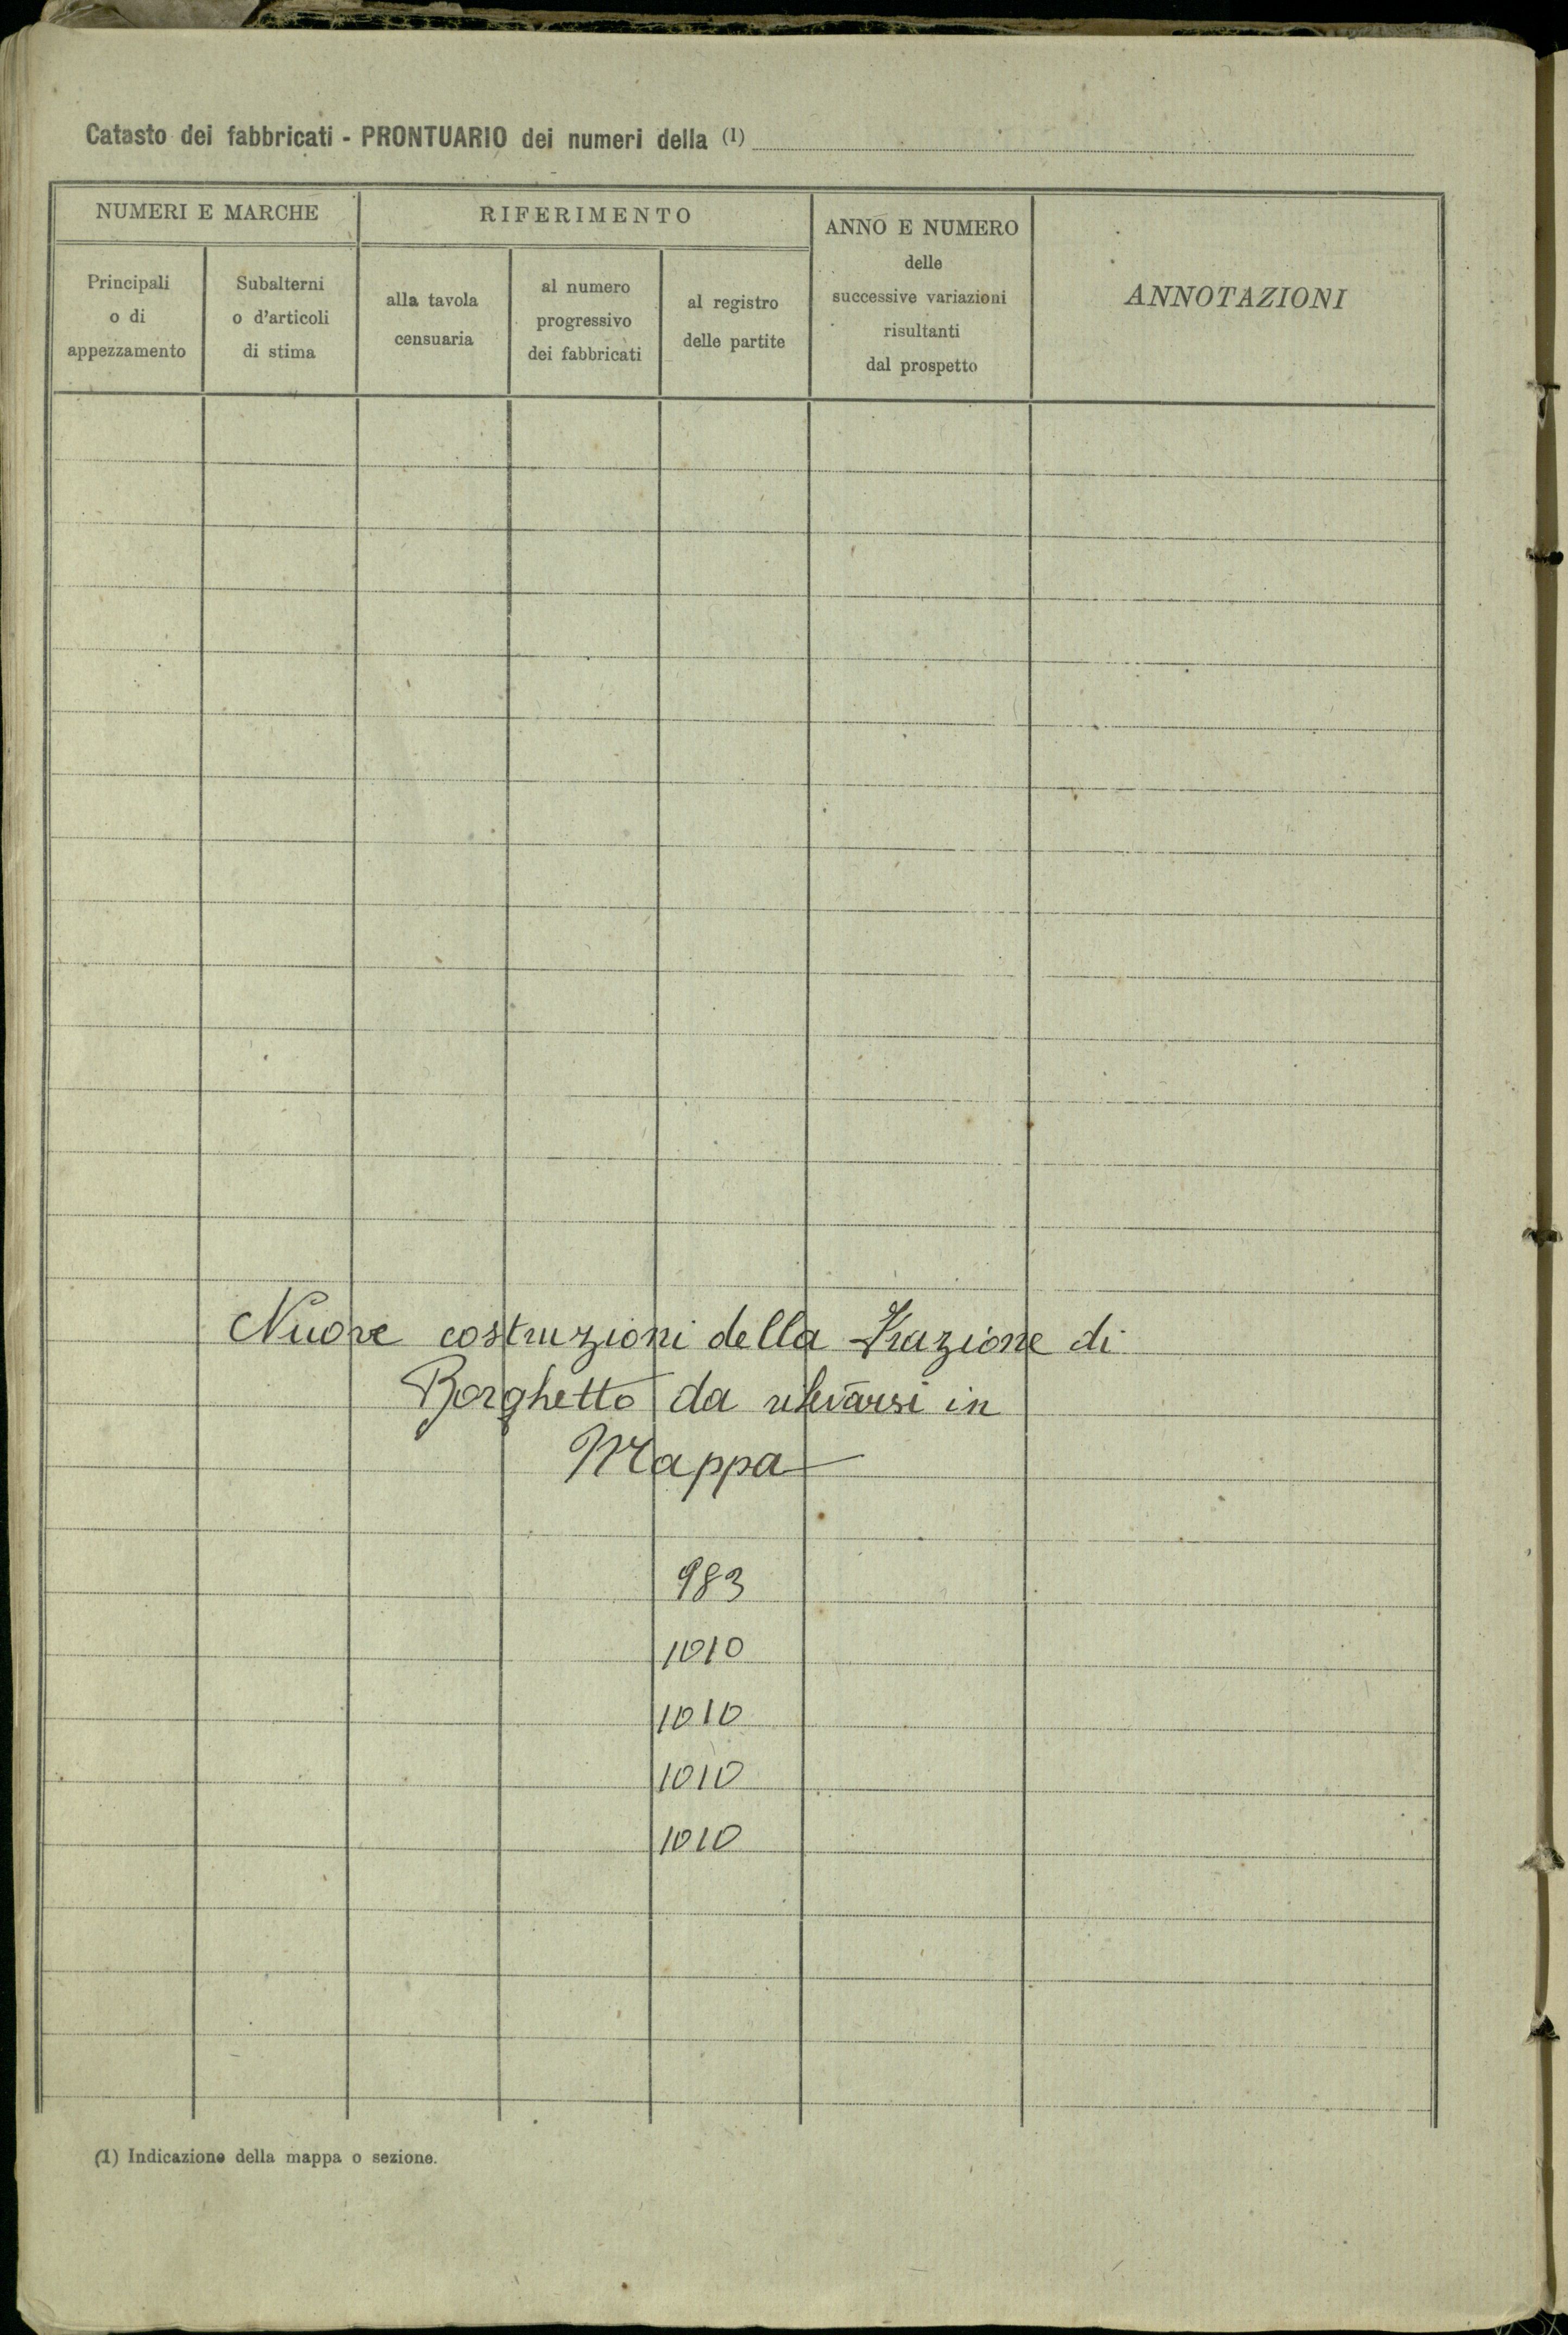 Catasto dei fabbricati - PRONTUARIO dei numeri della (1)
NUMERI E MARCHE
RIFERIMENTO
ANNO E NUMERO
delle
successive variazioni
risultanti
dal prospetto
ANNOTAZIONI
Principali
o di
appezzamento
Subalterni
o d'articoli
di stima
alla tavola
censuaria
al numero
progressivo
dei fabbricati
al registro
delle partite
Nuove costruzioni della Frazione di
Borghetto da rilevarsi in
Mappa
983
1010
1010
1010
1010
(1) Indicazione della mappa o sezione.